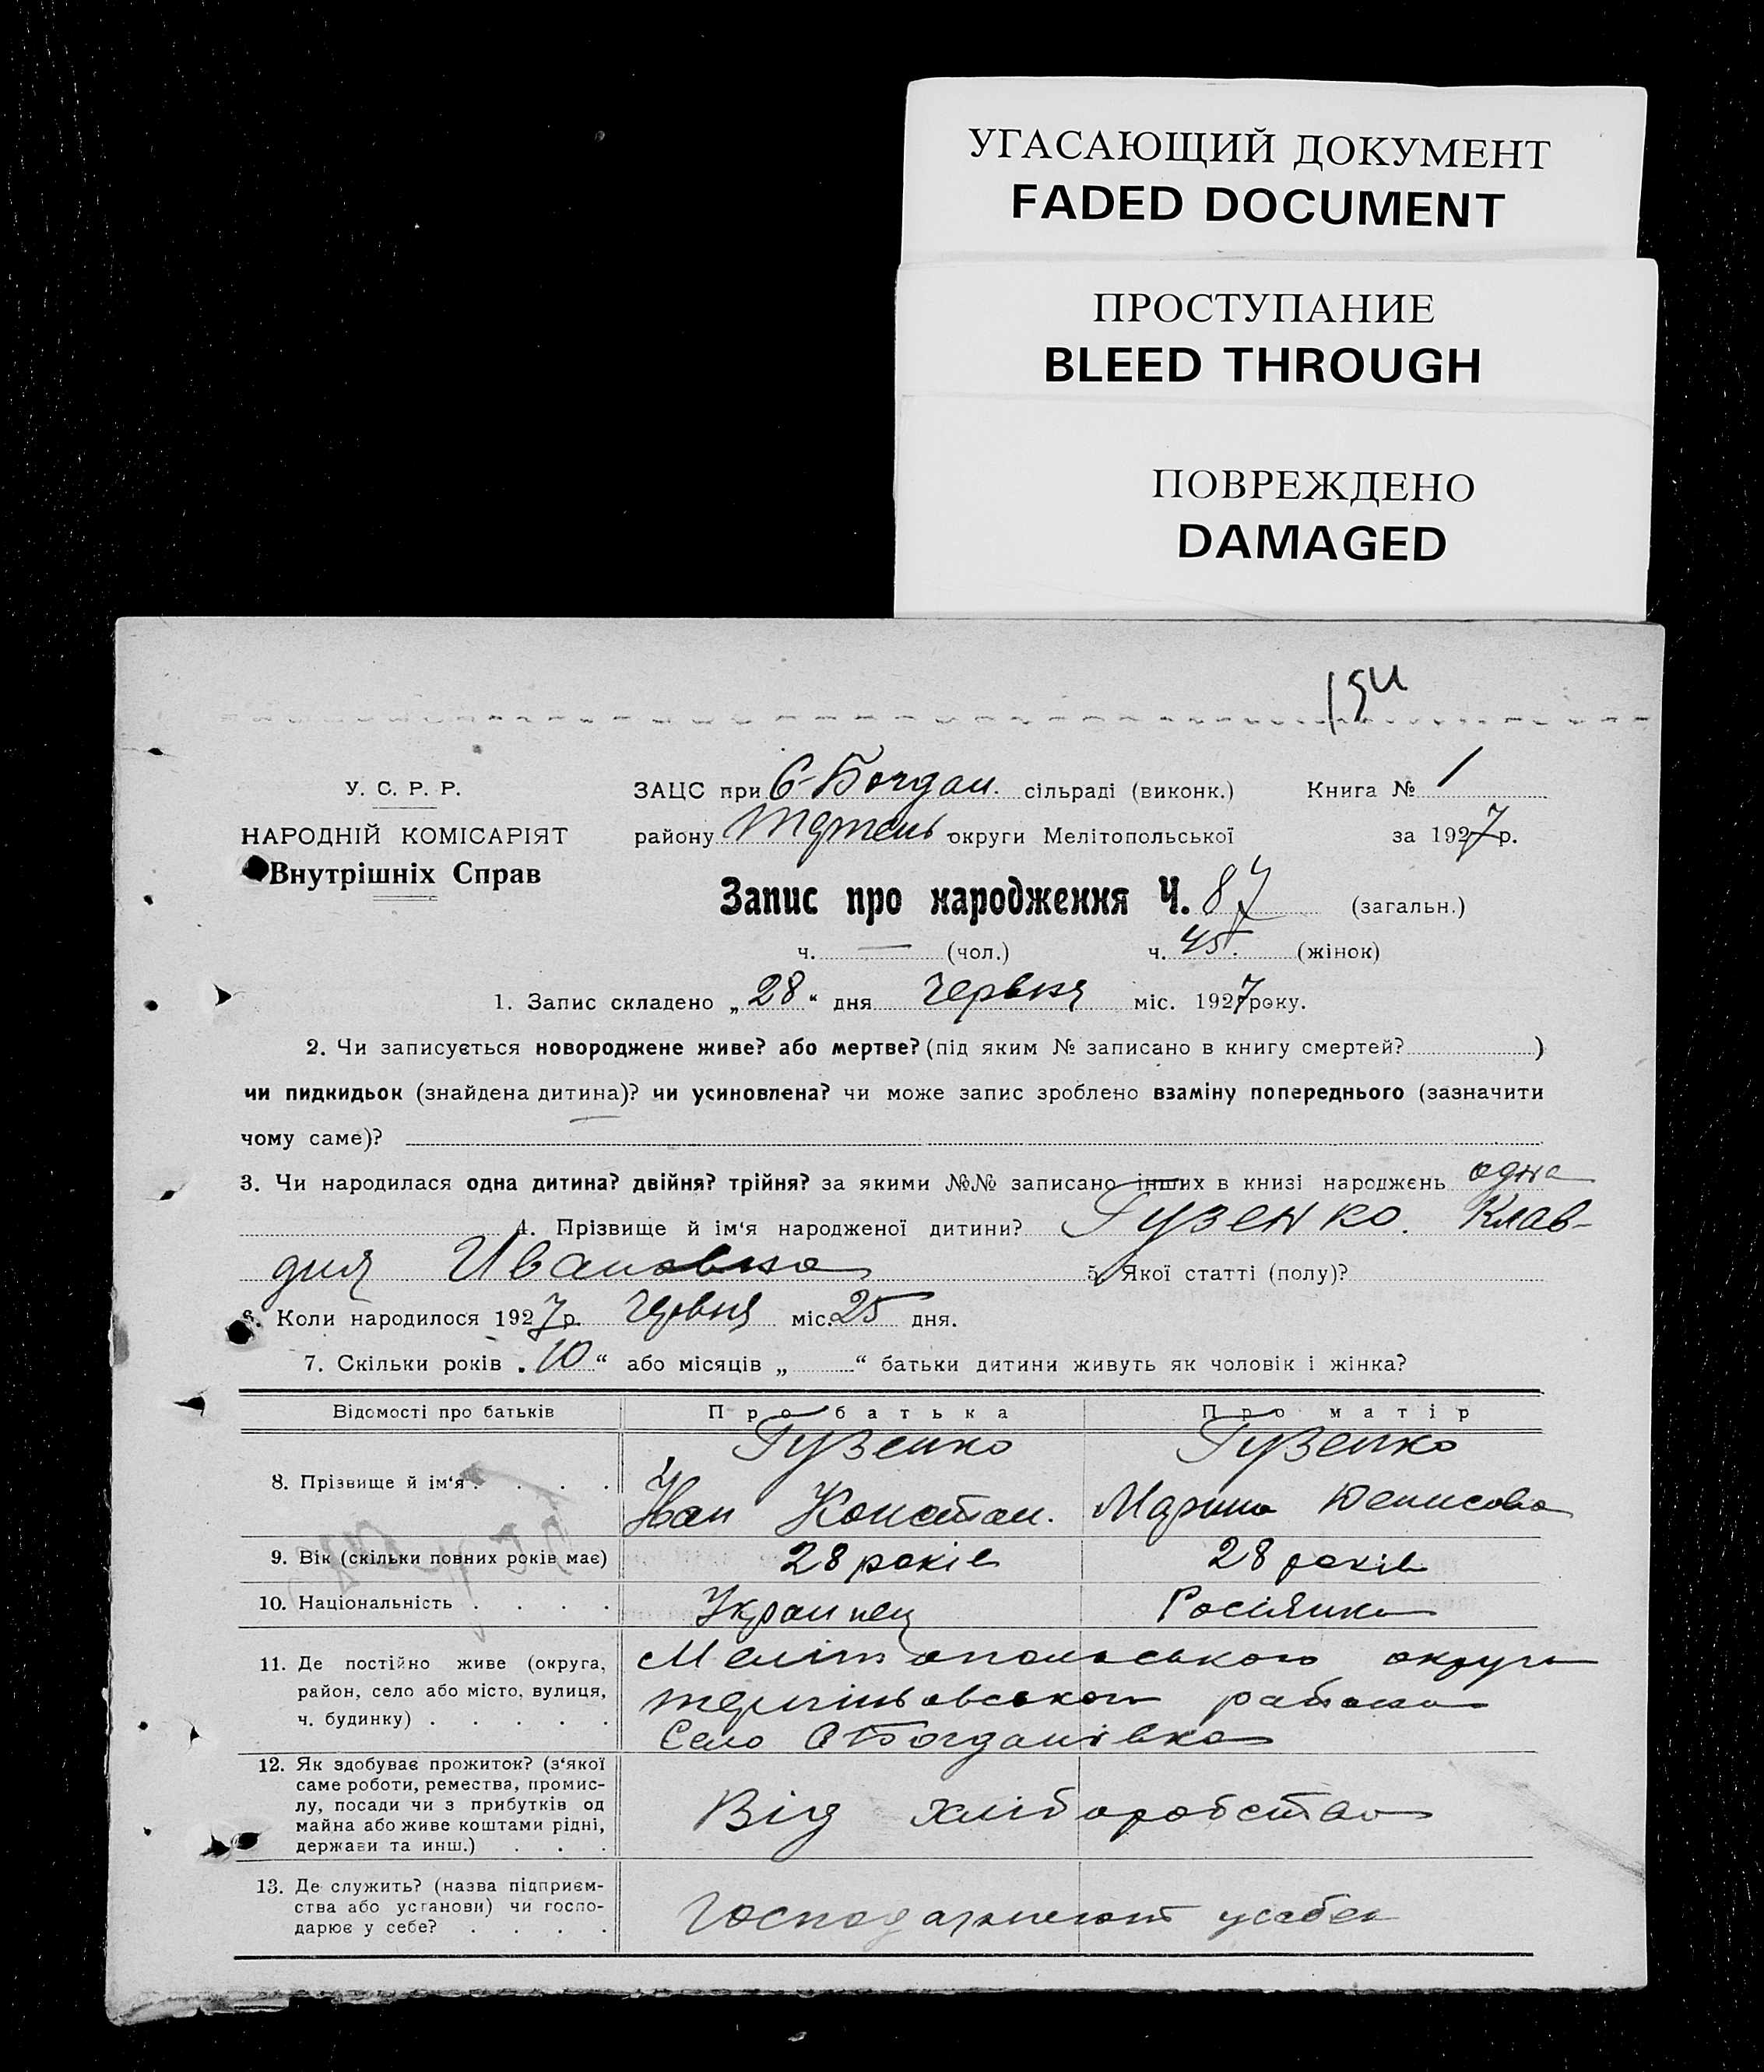 УГАСАЮЩИЙ ДОКУМЕНТ
FADED DOCUMENT
ПРОСТУПАНИЕ
BLEED THROUGH
ПОВРЕЖДЕНО
DAMAGED
У. С. Р. Р.
НАРОДНІЙ КОМІСАРІЯТ
Внутрішніх Справ
ЗАЦС при С-Богдан. сільраді (виконк.) Книга № 1
району округи Мелітопольської за 1927 р.
Запис про народження Ч. 87 (загальн.)
ч. — (чол.) ч. 45. (жінок)
1. Запис складено „28“ дня Червня міс. 1927 року.
2. Чи записується новороджене живе? або мертве? (під яким № записано в книгу смертей? )
чи пидкидьок (знайдена дитина)? чи усиновлена? чи може запис зроблено взаміну попереднього (зазначити
чому саме)?
3. Чи народилася одна дитина? двійня? трійня? за якими №№ записано інших в книзі народжень одна
4. Прізвище й ім‘я народженої дитини? Гузенко. Клав-
дия Ивановна 5. Якої статті (полу)?
6. Коли народилося 1927 р. Червня міс. 25 дня.
7. Скільки років „10“ або місяців „ “ батьки дитини живуть як чоловік і жінка?
Відомості про батьків Про батька Про матір
Гузенко Гузенко
8. Прізвище й ім‘я . . . . Іван Констан. Марина Денисова
9. Вік (скільки повних років має) 28 років 28 років
10. Національність . . . . Украинец Росіянка
11. Де постійно живе (округа,
район, село або місто, вулиця,
ч. будинку) . . . . .
Мелітопольського округи
района
Село Богданівка
12. Як здобуває прожиток? (з‘якої
саме роботи, ремества, промис-
лу, посади чи з прибутків од
майна або живе коштами рідні,
держави та инш.) . . .
Від хліборобства
13. Де служить? (назва підприєм-
ства або установи) чи госпо-
дарює у себе? . . . .
Господарюют у себе